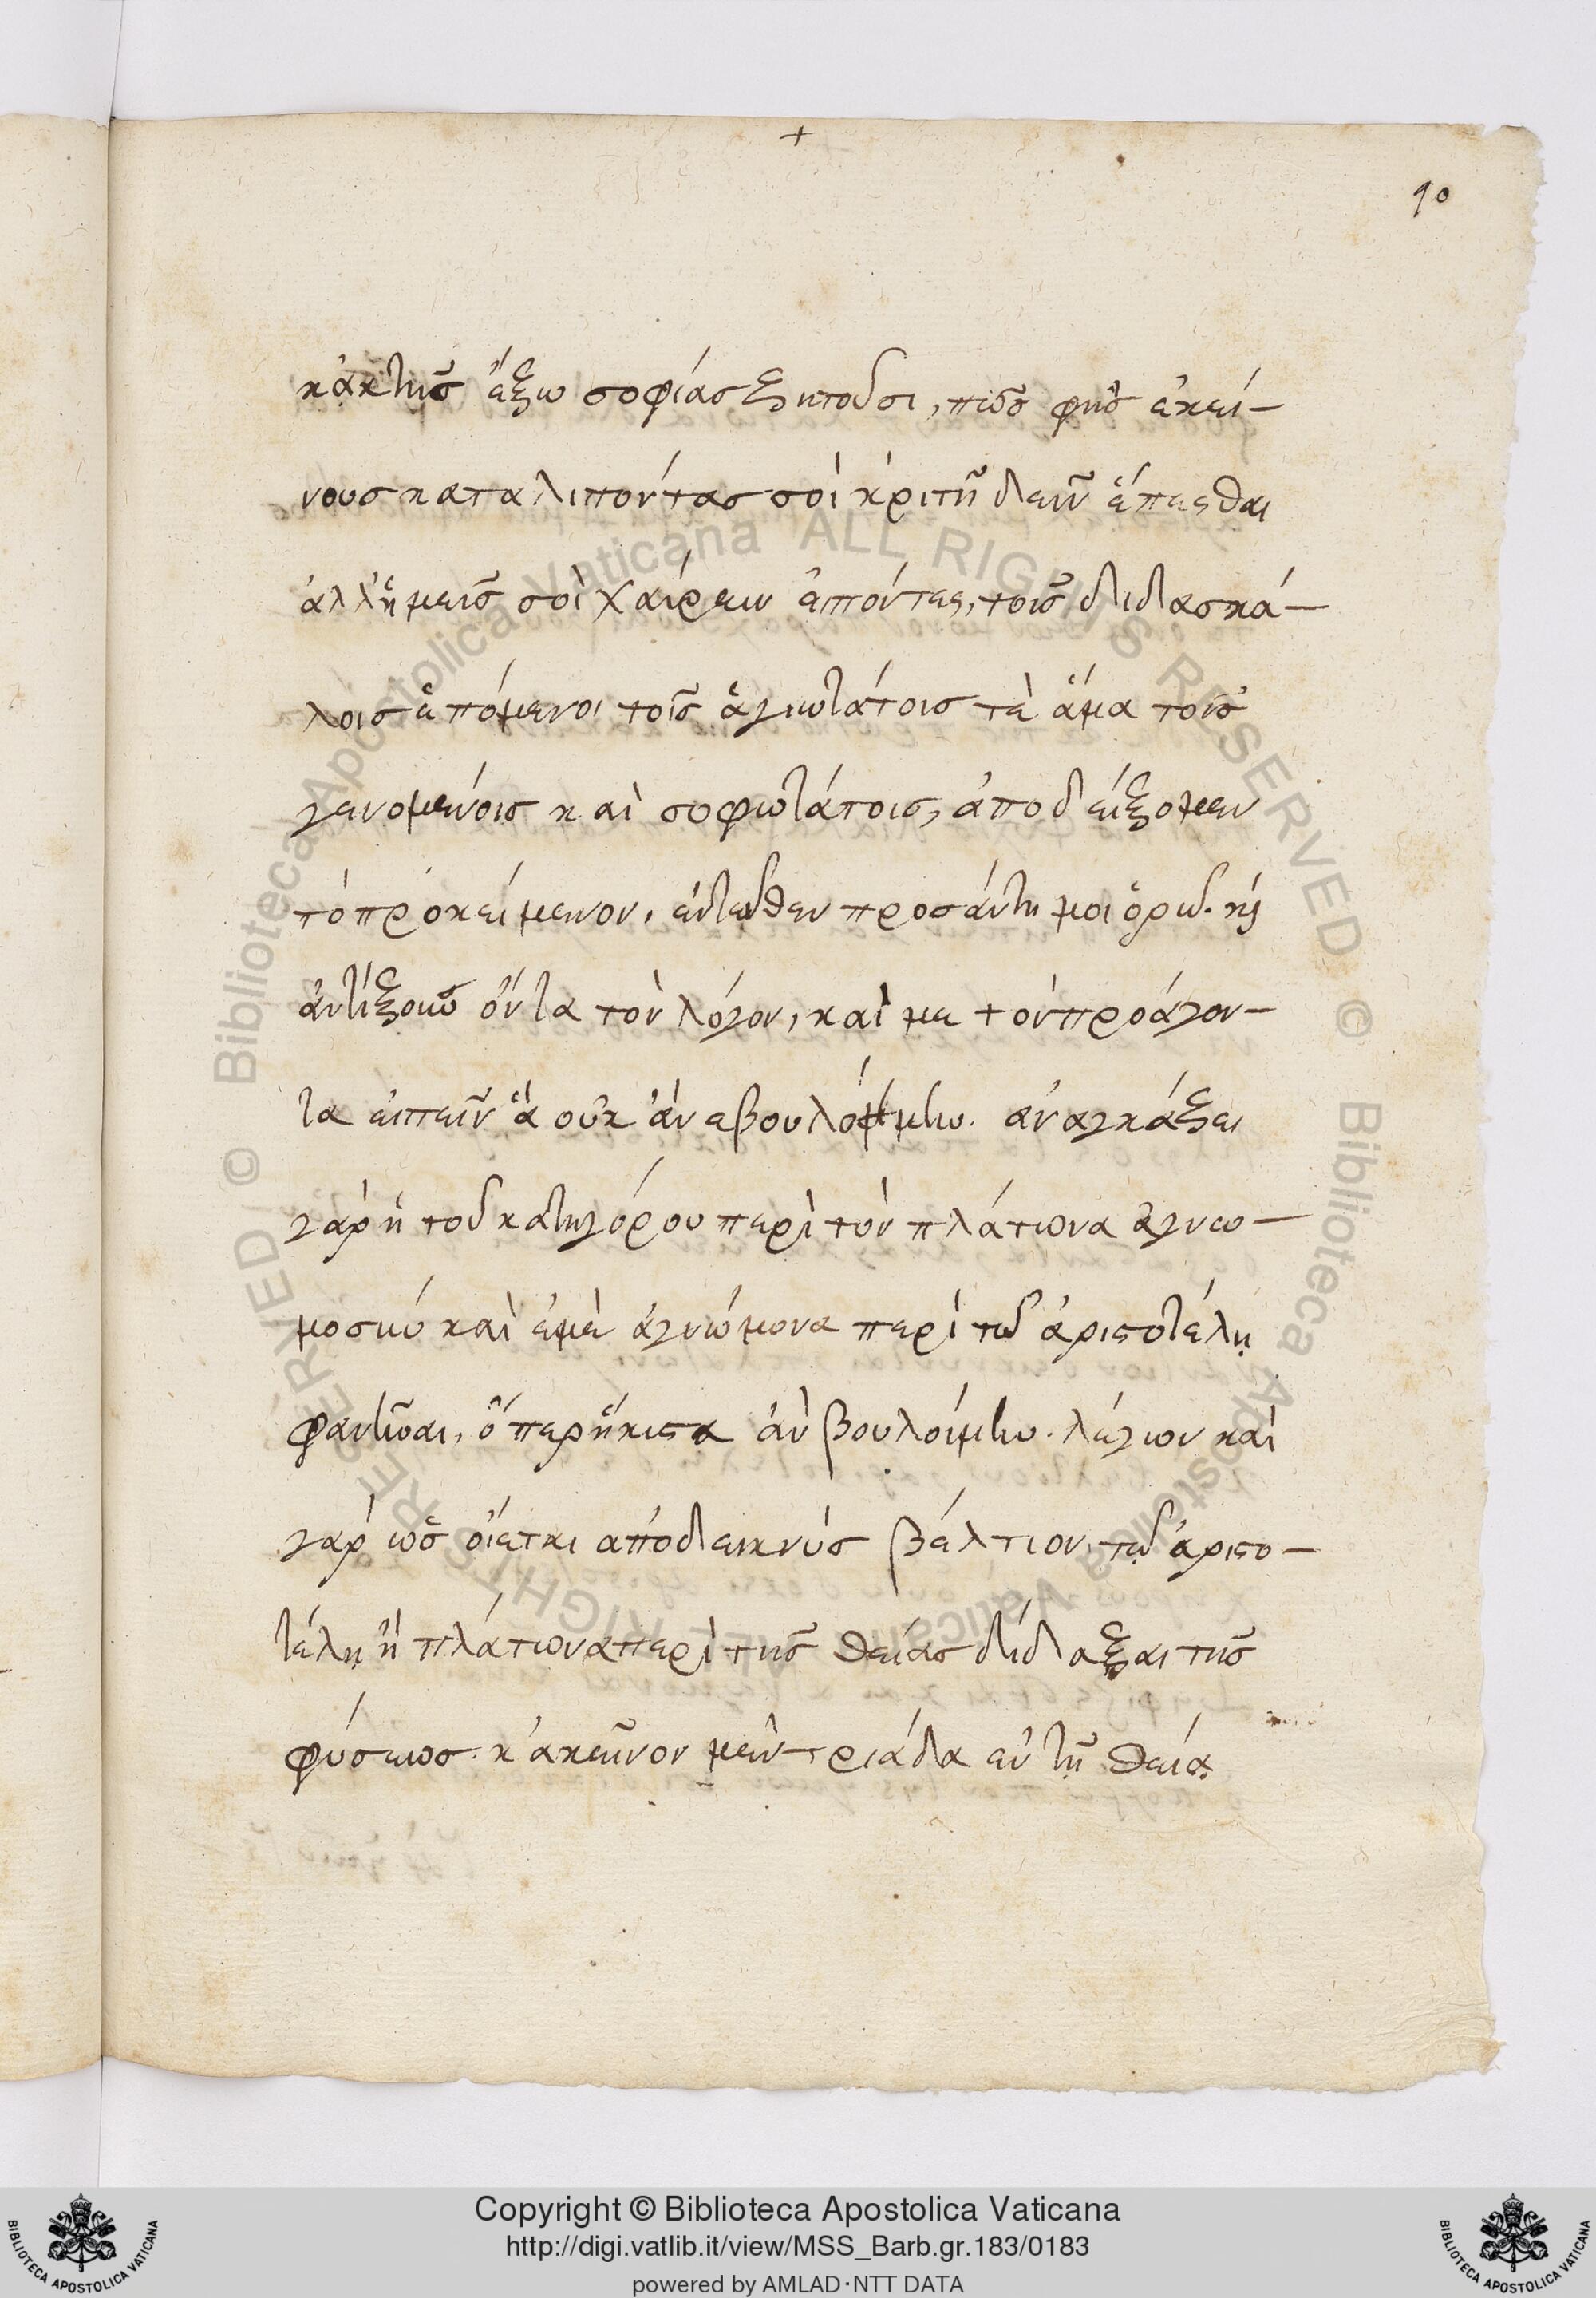 +
90
κἀκ τῆς ἔξω σοφίας ζητοῦσι, πῶς φῂς ἐκεί-
νους καταλιπόντας σοὶ κριτῇ δεῖν ἕπεσθαι
ἀλλ' ἡμεῖς σοὶ χαίρειν εἰπόντες, τοῖς διδασκά-
λοις ἑπόμενοι τοῖς ἁγιωτάτοις τὲ ἅμα τοῖς
γενομένοις καὶ σοφωτάτοις, ἀποδείξομεν
τὸ προκείμενον. ἐντεῦθεν προσάντη μοι ὁρῶ. καὶ
ἀντίξουν ὄντα τὸν λόγον, καὶ με τὸν προάγον-
τα εἰπεῖν ἃ οὐκ ἂν ἐβουλόμην. ἀναγκάζει
γὰρ ἡ τοῦ κατηγόρου περὶ τὸν πλάτωνα ἀγνω-
μοσύνη καὶ ἐμὲ ἀγνώμονα περὶ τῶ ἀριστοτέλη
φανῆναι, ὅπερ ἥκιστα ἂν βουλοίμην. λέγων καὶ
γὰρ ὡς οἴεται ἀποδεικνὺς βέλτιον τῶ ἀριστο-
τέλη ἢ πλάτωνα περὶ τῆς θείας διδάξαι τῆς
φύσεως. κἀκεῖνον μὲν τριάδα ἐν τῇ θείᾳ
Copyright © Biblioteca Apostolica Vaticana
http://digi.vatlib.it/view/MSS_Barb.gr.183/0183
powered by AMLAD·NTT DATA